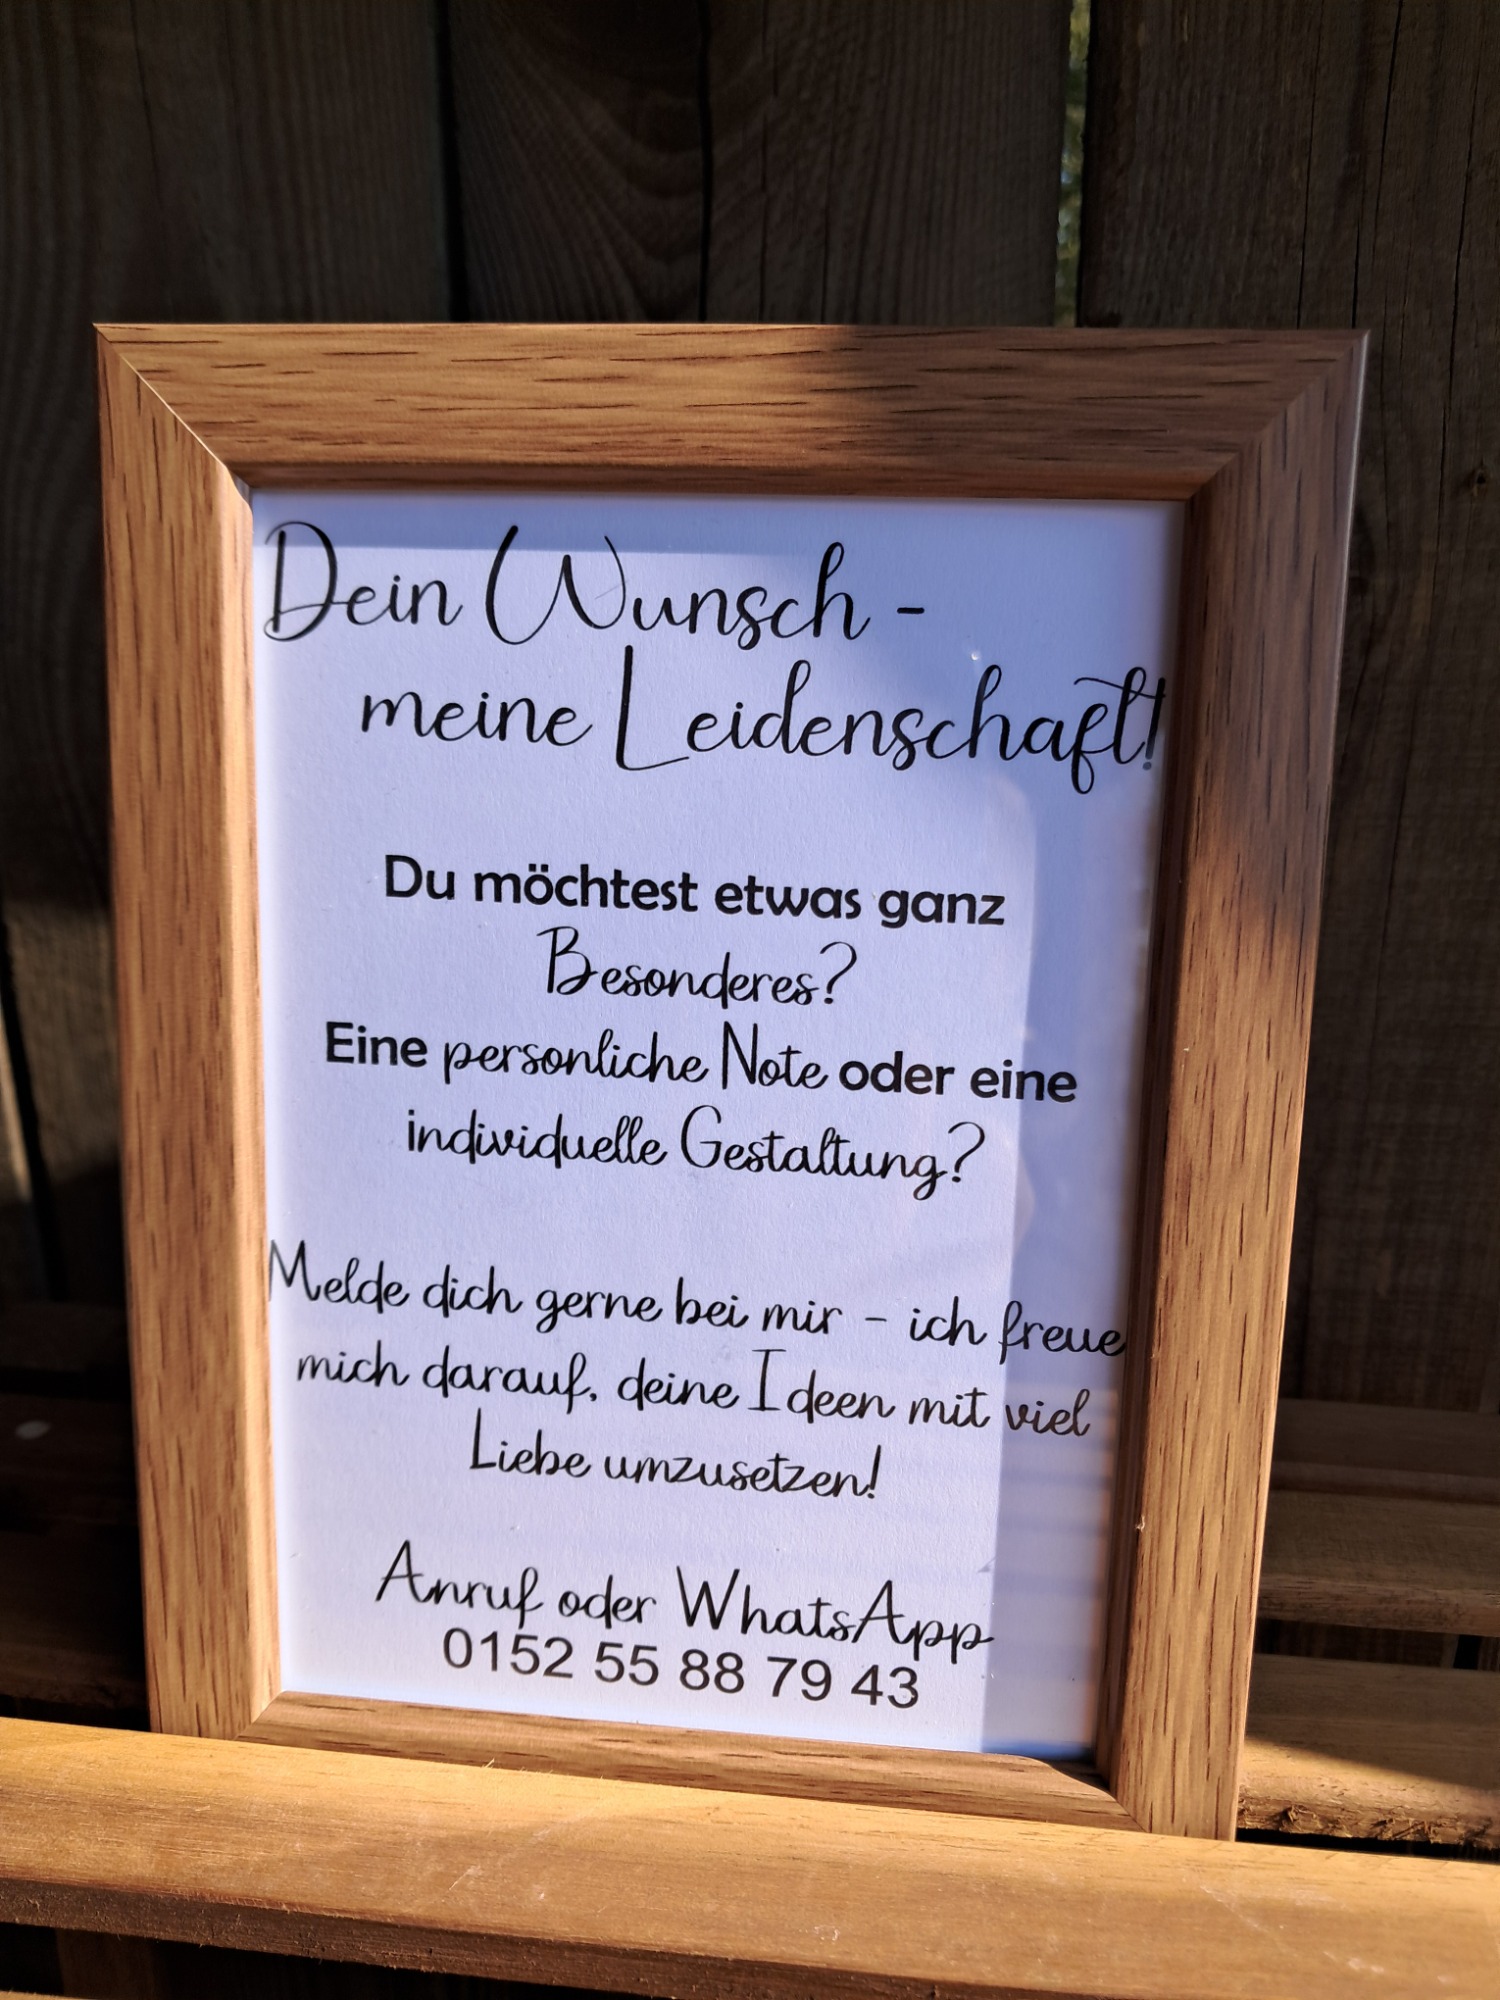 Dein Wunsch -
meine Leidenschaft!
Du möchtest etwas ganz
Besonderes?
Eine personliche Note oder eine
individuelle Gestaltung?
Melde dich gerne bei mir - ich freue
mich darauf, deine Ideen mit viel
Liebe umzusetzen!
Anruf oder WhatsApp
0152 55 88 79 43